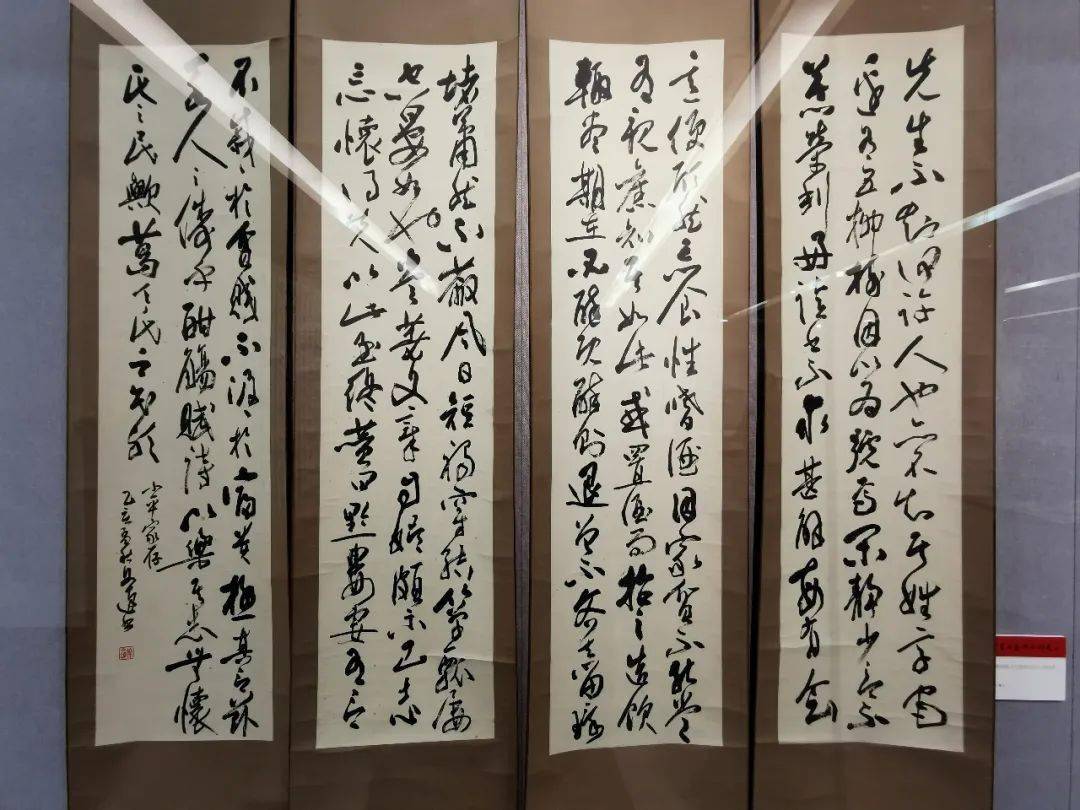 先生不知何许人也亦不其姓字宅
邊有五柳樹因以為號焉閑靜少言不
慕榮利好讀書不求甚解每有會
意便欣然忘食性嗜酒因家貧不能常
得親舊知其如此或置酒而招之造飲
輒盡期在必醉既醉則退曾不吝去留環
堵蕭然不蔽風日短褐穿結簞瓢屢
空晏如也常著文章自娛頗示己志
忘懷得失以此自終贊曰黔婁妻有言
不戚〻於貧賤不汲〻於富貴極其言茲
若人之儔乎酣觴賦詩以樂其志無懷
氏之民歟葛天氏之民歟